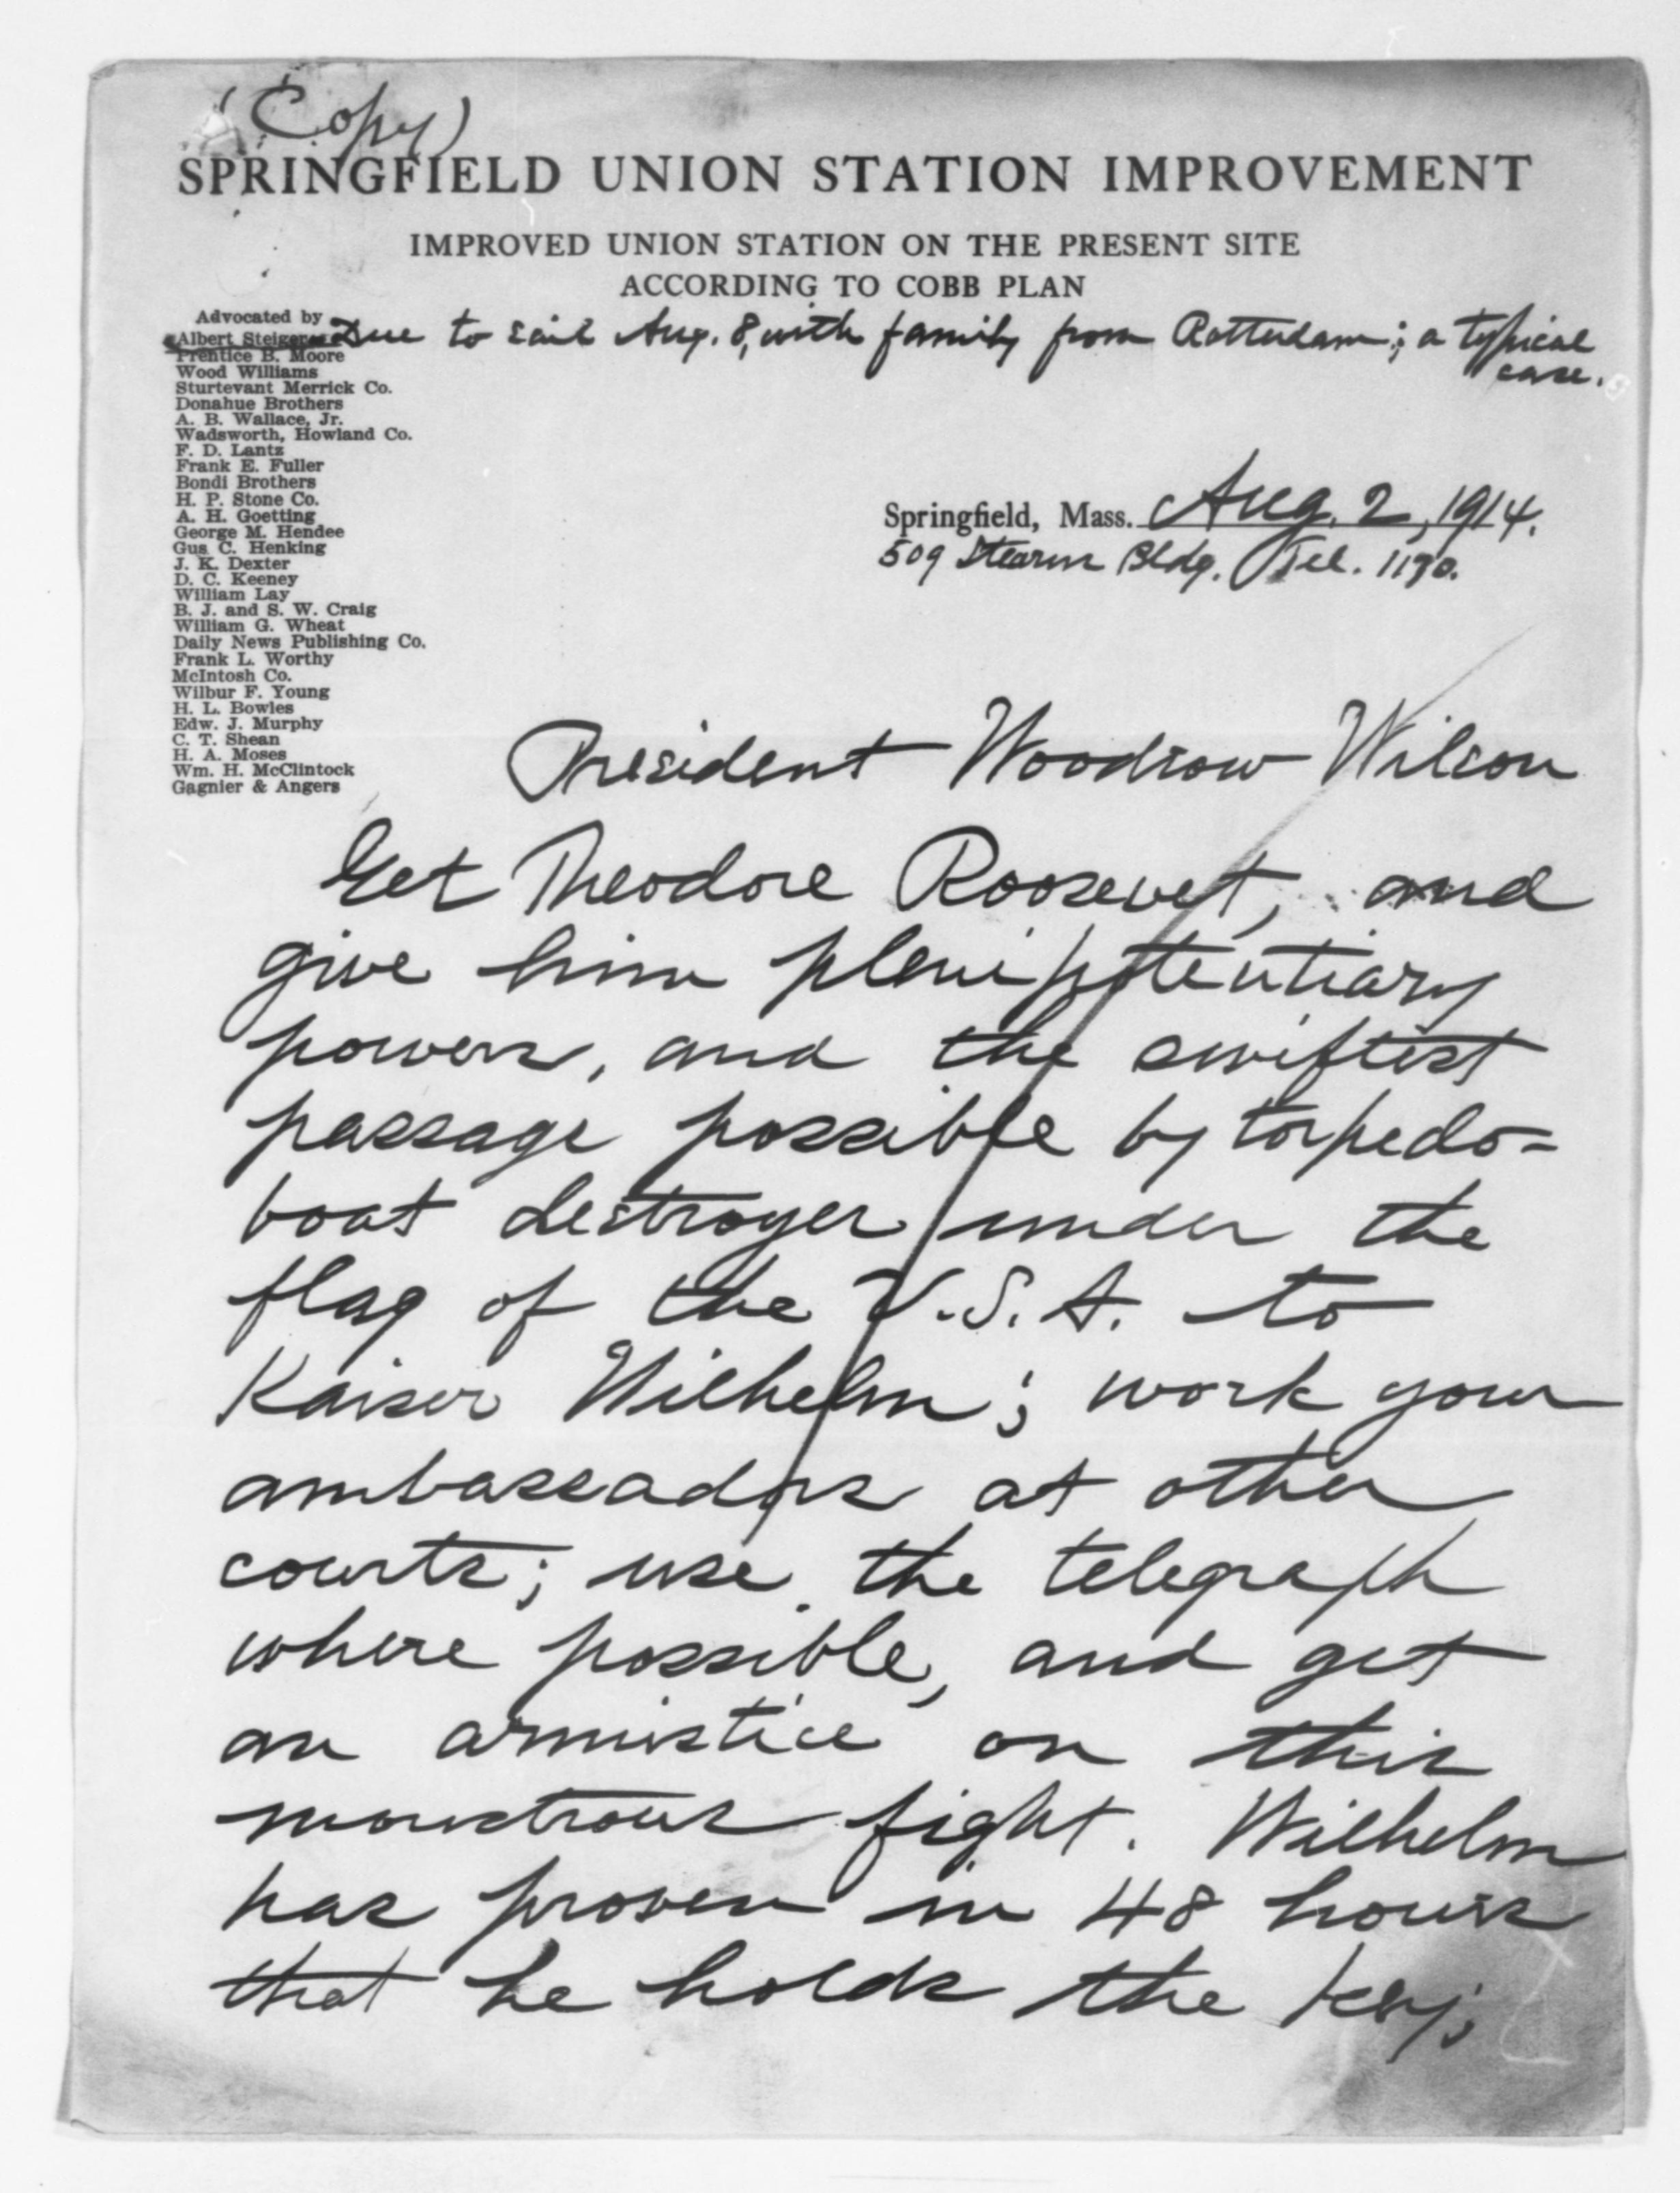 (Copy)
SPRINGFIELD UNION STATION IMPROVEMENT
IMPROVED UNION STATION ON THE PRESENT SITE
ACCORDING TO COBB PLAN
Advocated by
Albert Steiger Due to sail Aug. 8, with family from Rotterdam; a typical
case.
Prentice B. Moore
Wood Williams
Sturtevant Merrick Co.
Donahue Brothers
A. B. Wallace, Jr.
Wadsworth, Howland Co.
F. D. Lantz
Frank E. Fuller
Bondi Brothers
H. P. Stone Co.
A. H. Goetting
George M. Hendee
Gus C. Henking
J. K. Dexter
D. C. Keeney
William Lay
B. J. and S. W. Craig
William G. Wheat
Daily News Publishing Co.
Frank L. Worthy
McIntosh Co.
Wilbur F. Young
H. L. Bowles
Edw. J. Murphy
C. T. Shean
H. A. Moses
Wm. H. McClintock
Gagnier & Angers
Springfield, Mass. Aug. 2, 1914.
509 Stearns Bldg. Tel. 1190.
President Woodrow Wilson
Get Theodore Roosevet, and
give him plenipotentiary
powers, and the swiftest
passage possible by torpedo-
boat destroyer under the
flag of the U.S.A. to
Kaiser Wilhelm; work your
ambassadors at other
courts; use the telegraph
where possible, and get
an armistice on this
monstrous fight. Wilhelm
has proven in 48 hours
that he holds the key;